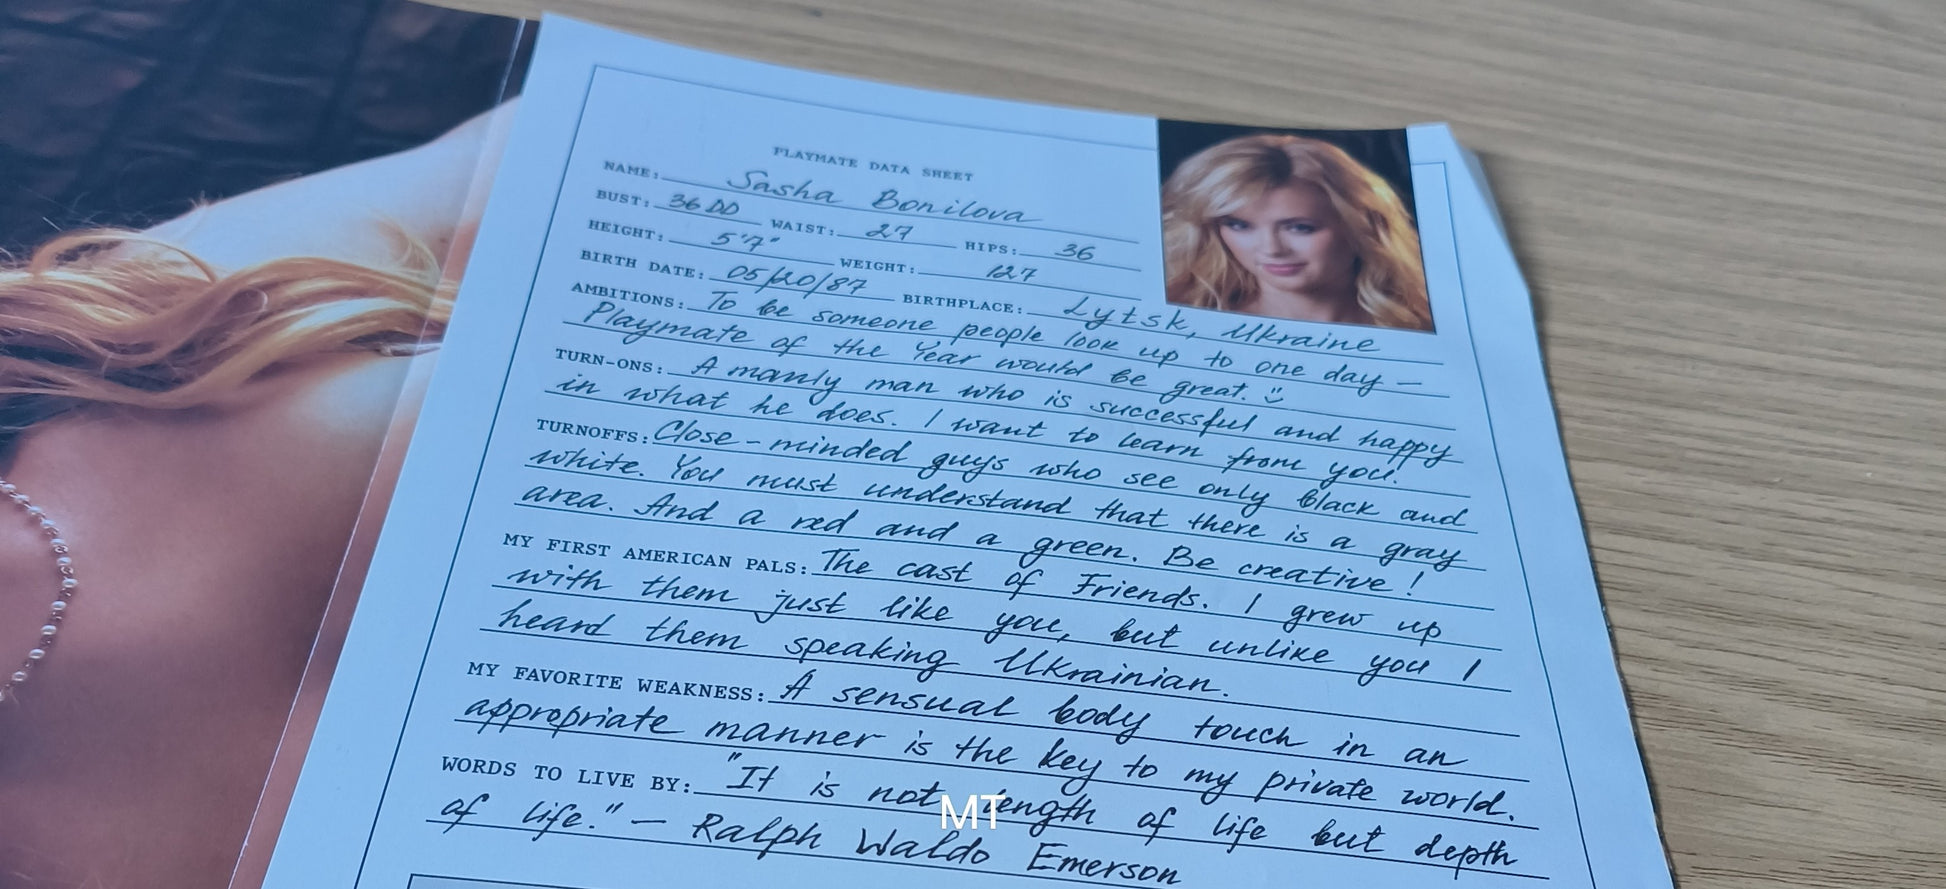 PLAYMATE DATA SHEET
NAME: Sasha Bonilova
BUST: 36DD WAIST: 27 HIPS: 36
HEIGHT: 5'7" WEIGHT: 127
BIRTH DATE: 05/20/87 BIRTHPLACE: Lytsk, Ukraine
AMBITIONS: To be someone people look up to one day —
Playmate of the Year would be great. :)
TURN-ONS: A manly man who is successful and happy
in what he does. I want to learn from you.
TURNOFFS: Close-minded guys who see only black and
white. You must understand that there is a gray
area. And a red and a green. Be creative!
MY FIRST AMERICAN PALS: The cast of Friends. I grew up
with them just like you, but unlike you I
heard them speaking Ukrainian.
MY FAVORITE WEAKNESS: A sensual body touch in an
appropriate manner is the key to my private world.
WORDS TO LIVE BY: "It is not length of life but depth
of life." — Ralph Waldo Emerson
MT